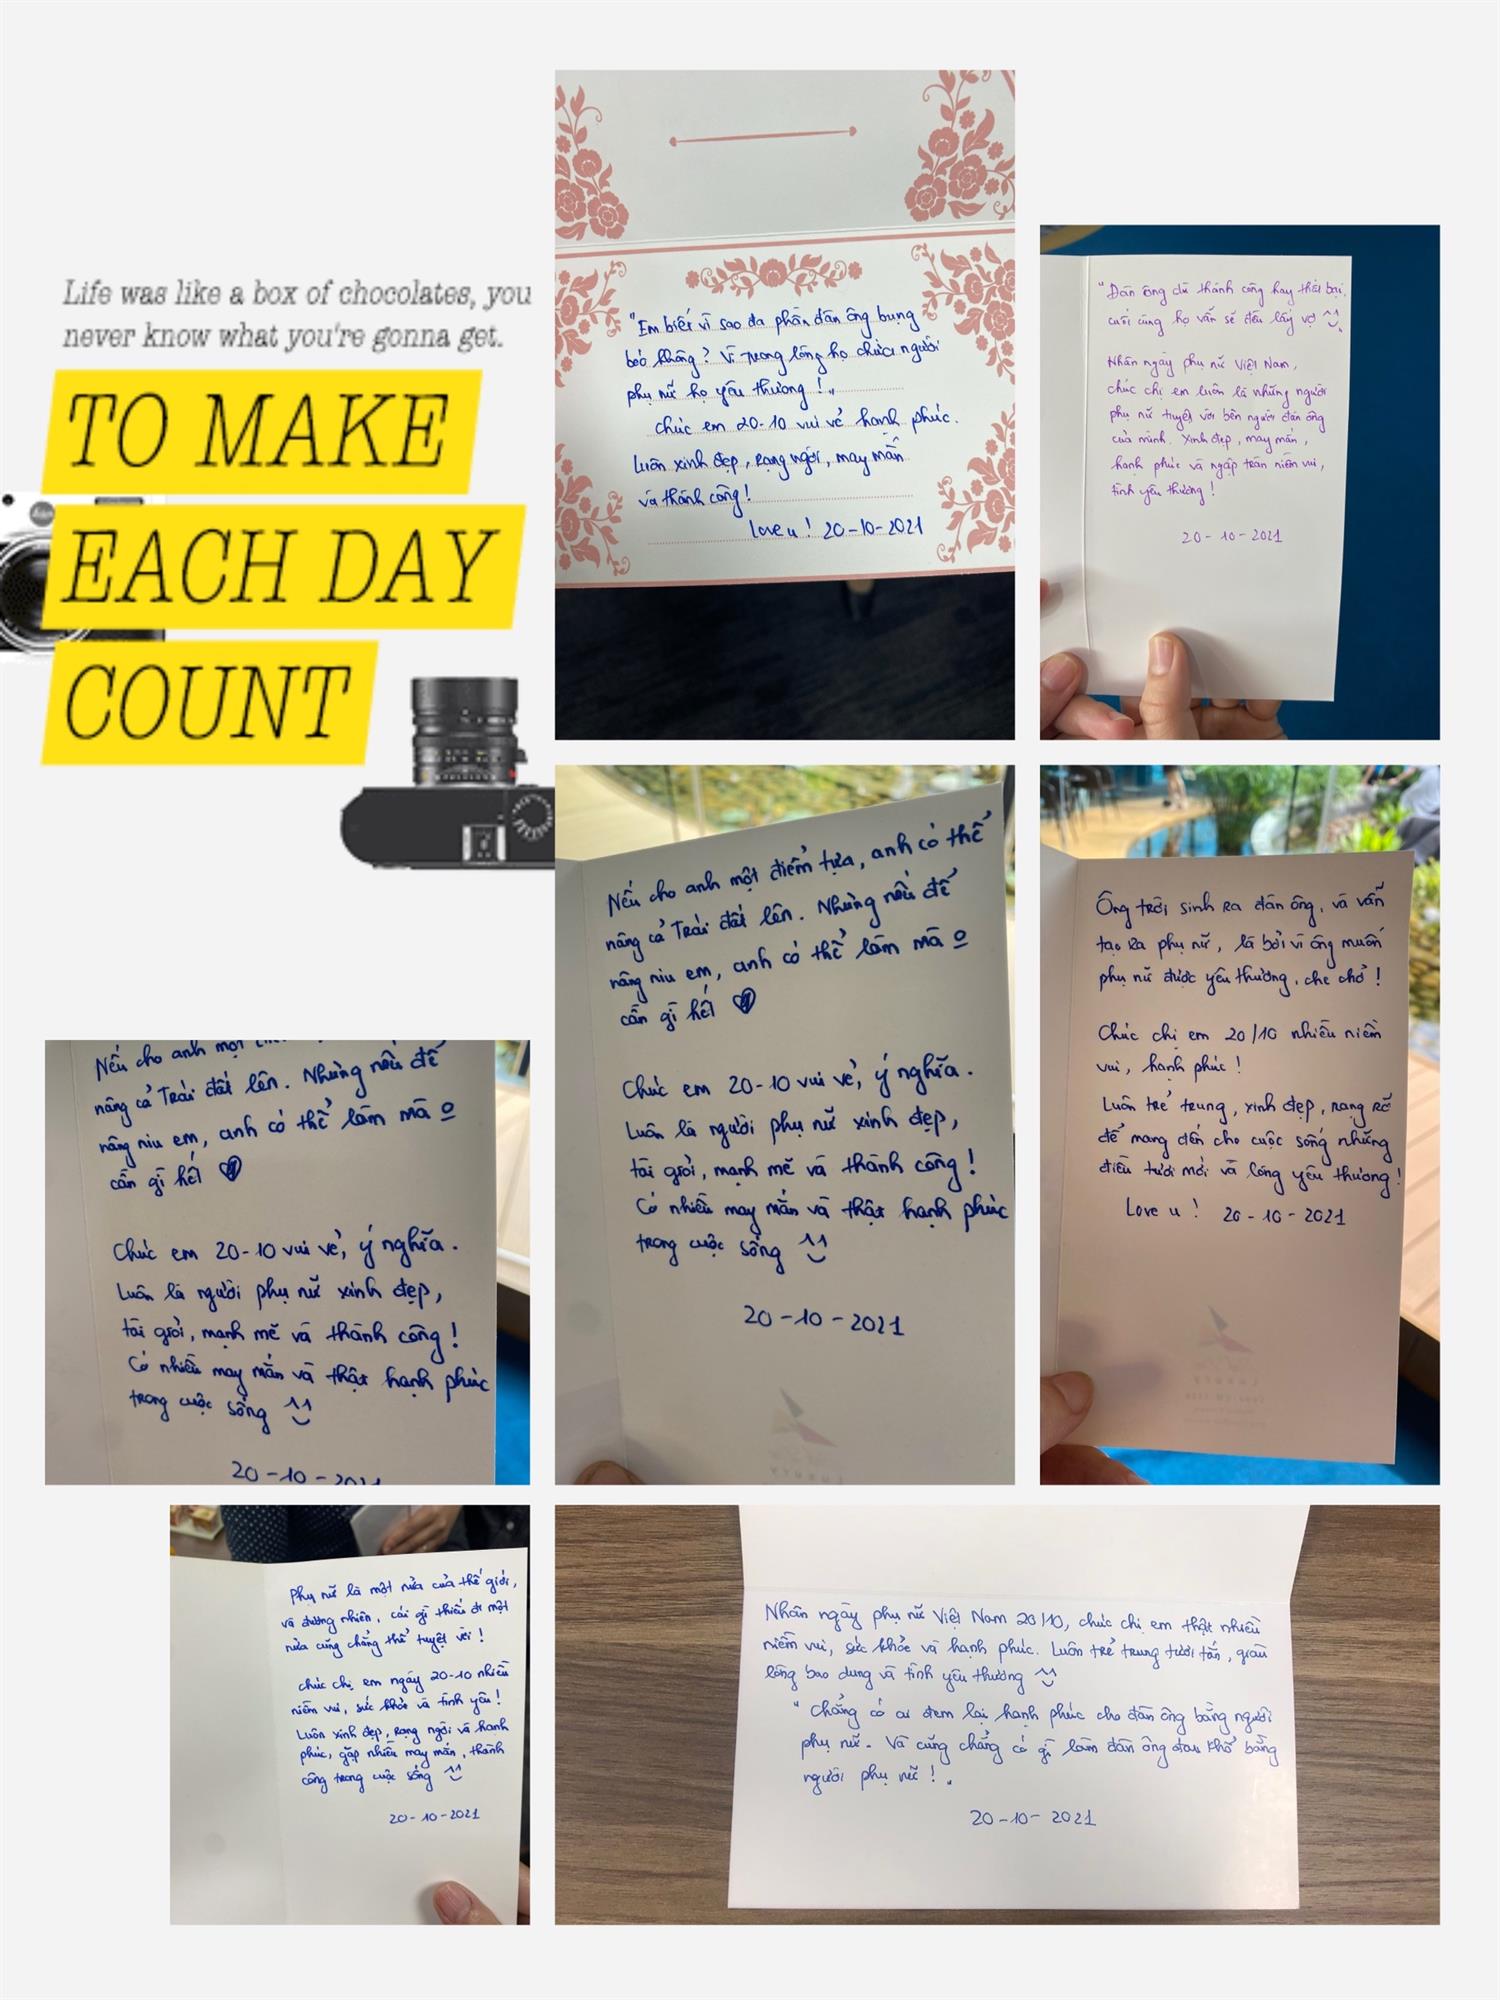 Life was like a box of chocolates, you
never know what you're gonna get.
TO MAKE
EACH DAY
COUNT
"Em biết vì sao đa phần đàn ông bụng
béo không? Vì trong lòng họ chứa người
phụ nữ họ yêu thương!"
Chúc em 20-10 vui vẻ hạnh phúc.
Luôn xinh đẹp, rạng ngời, may mắn
và thành công!
Love u! 20-10-2021
"Đàn ông dù thành công hay thất bại,
cuối cùng họ vẫn sẽ đều lấy vợ ^^
Nhân ngày phụ nữ Việt Nam,
chúc chị em luôn là những người
phụ nữ tuyệt vời bên người đàn ông
của mình. Xinh đẹp, may mắn,
hạnh phúc và ngập tràn niềm vui,
tình yêu thương!
20-10-2021
Nếu cho anh một điểm tựa, anh có thể
nâng cả Trái đất lên. Nhưng nếu để
nâng niu em, anh có thể làm mà o
cần gì hết
Chúc em 20-10 vui vẻ, ý nghĩa.
Luôn là người phụ nữ xinh đẹp,
tài giỏi, mạnh mẽ và thành công!
Có nhiều may mắn và thật hạnh phúc
trong cuộc sống ^^
20-10-2021
Ông trời sinh ra đàn ông, và vẫn
tạo ra phụ nữ, là bởi vì ông muốn
phụ nữ được yêu thương, che chở!
Chúc chị em 20/10 nhiều niềm
vui, hạnh phúc!
Luôn trẻ trung, xinh đẹp, rạng rỡ
để mang đến cho cuộc sống những
điều tươi mới và lòng yêu thương!
Love u! 20-10-2021
Nếu cho anh một
nâng cả Trái đất lên. Nhưng nếu để
nâng niu em, anh có thể làm mà o
cần gì hết
Chúc em 20-10 vui vẻ, ý nghĩa.
Luôn là người phụ nữ xinh đẹp,
tài giỏi, mạnh mẽ và thành công!
Có nhiều may mắn và thật hạnh phúc
trong cuộc sống ^^
20-10-2021
Phụ nữ là một nửa của thế giới,
và đương nhiên, cái gì thiếu đi một
nửa cũng chẳng thể tuyệt vời!
Chúc chị em ngày 20-10 nhiều
niềm vui, sức khỏe và tình yêu!
Luôn xinh đẹp, rạng ngời và hạnh
phúc, gặp nhiều may mắn, thành
công trong cuộc sống ^^
20-10-2021
Nhân ngày phụ nữ Việt Nam 20/10, chúc chị em thật nhiều
niềm vui, sức khỏe và hạnh phúc. Luôn trẻ trung tươi tắn, giàu
lòng bao dung và tình yêu thương ^^
"Chẳng có ai đem lại hạnh phúc cho đàn ông bằng người
phụ nữ. Và cũng chẳng có gì làm đàn ông đau khổ bằng
người phụ nữ!"
20-10-2021